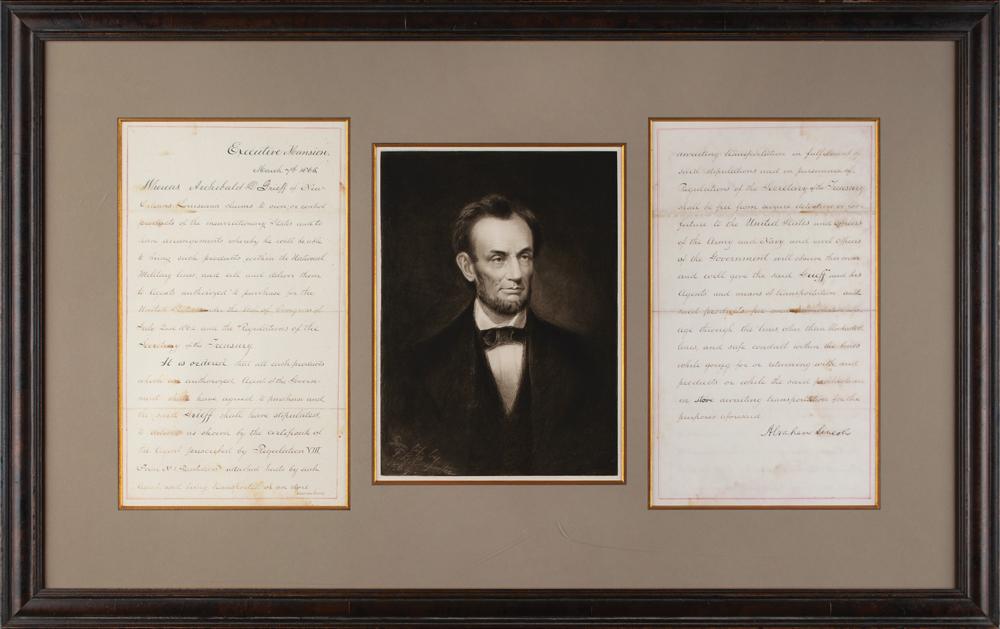 Executive Mansion,
March 7th 1865
Whereas Archibald D. Grieff of New
Orleans, Louisiana claims to own, or control
products of the insurrectionary States and to
have arrangements whereby he will be able
to bring such products within the National
Military lines, and sell and deliver them
to Agents authorized to purchase for the
United States under the Act of Congress of
July 2nd 1864 and the Regulations of the
Secretary of the Treasury
It is ordered that all such products
which an authorized Agent of the Govern-
ment shall have agreed to purchase and
the said Grieff shall have stipulated
to deliver as shown by the certificate of
the Agent prescribed by Regulation VIII
Form No 1 attached hereto by such
Agent, and being transported or in store
awaiting transportation in fulfillment of
such stipulations and in pursuance of
Regulations of the Secretary of the Treasury
shall be free from seizure detention or for-
feiture to the United States and officers
of the Army and Navy and civil officers
of the Government will observe this order
and will give the said Grieff and his
Agents and means of transportation and
said products free and pass-
age through the lines other than blockaded
lines, and safe conduct within the lines
while going for or returning with said
products or while the said products are
in store awaiting transportation for the
purposes aforesaid
Abraham Lincoln